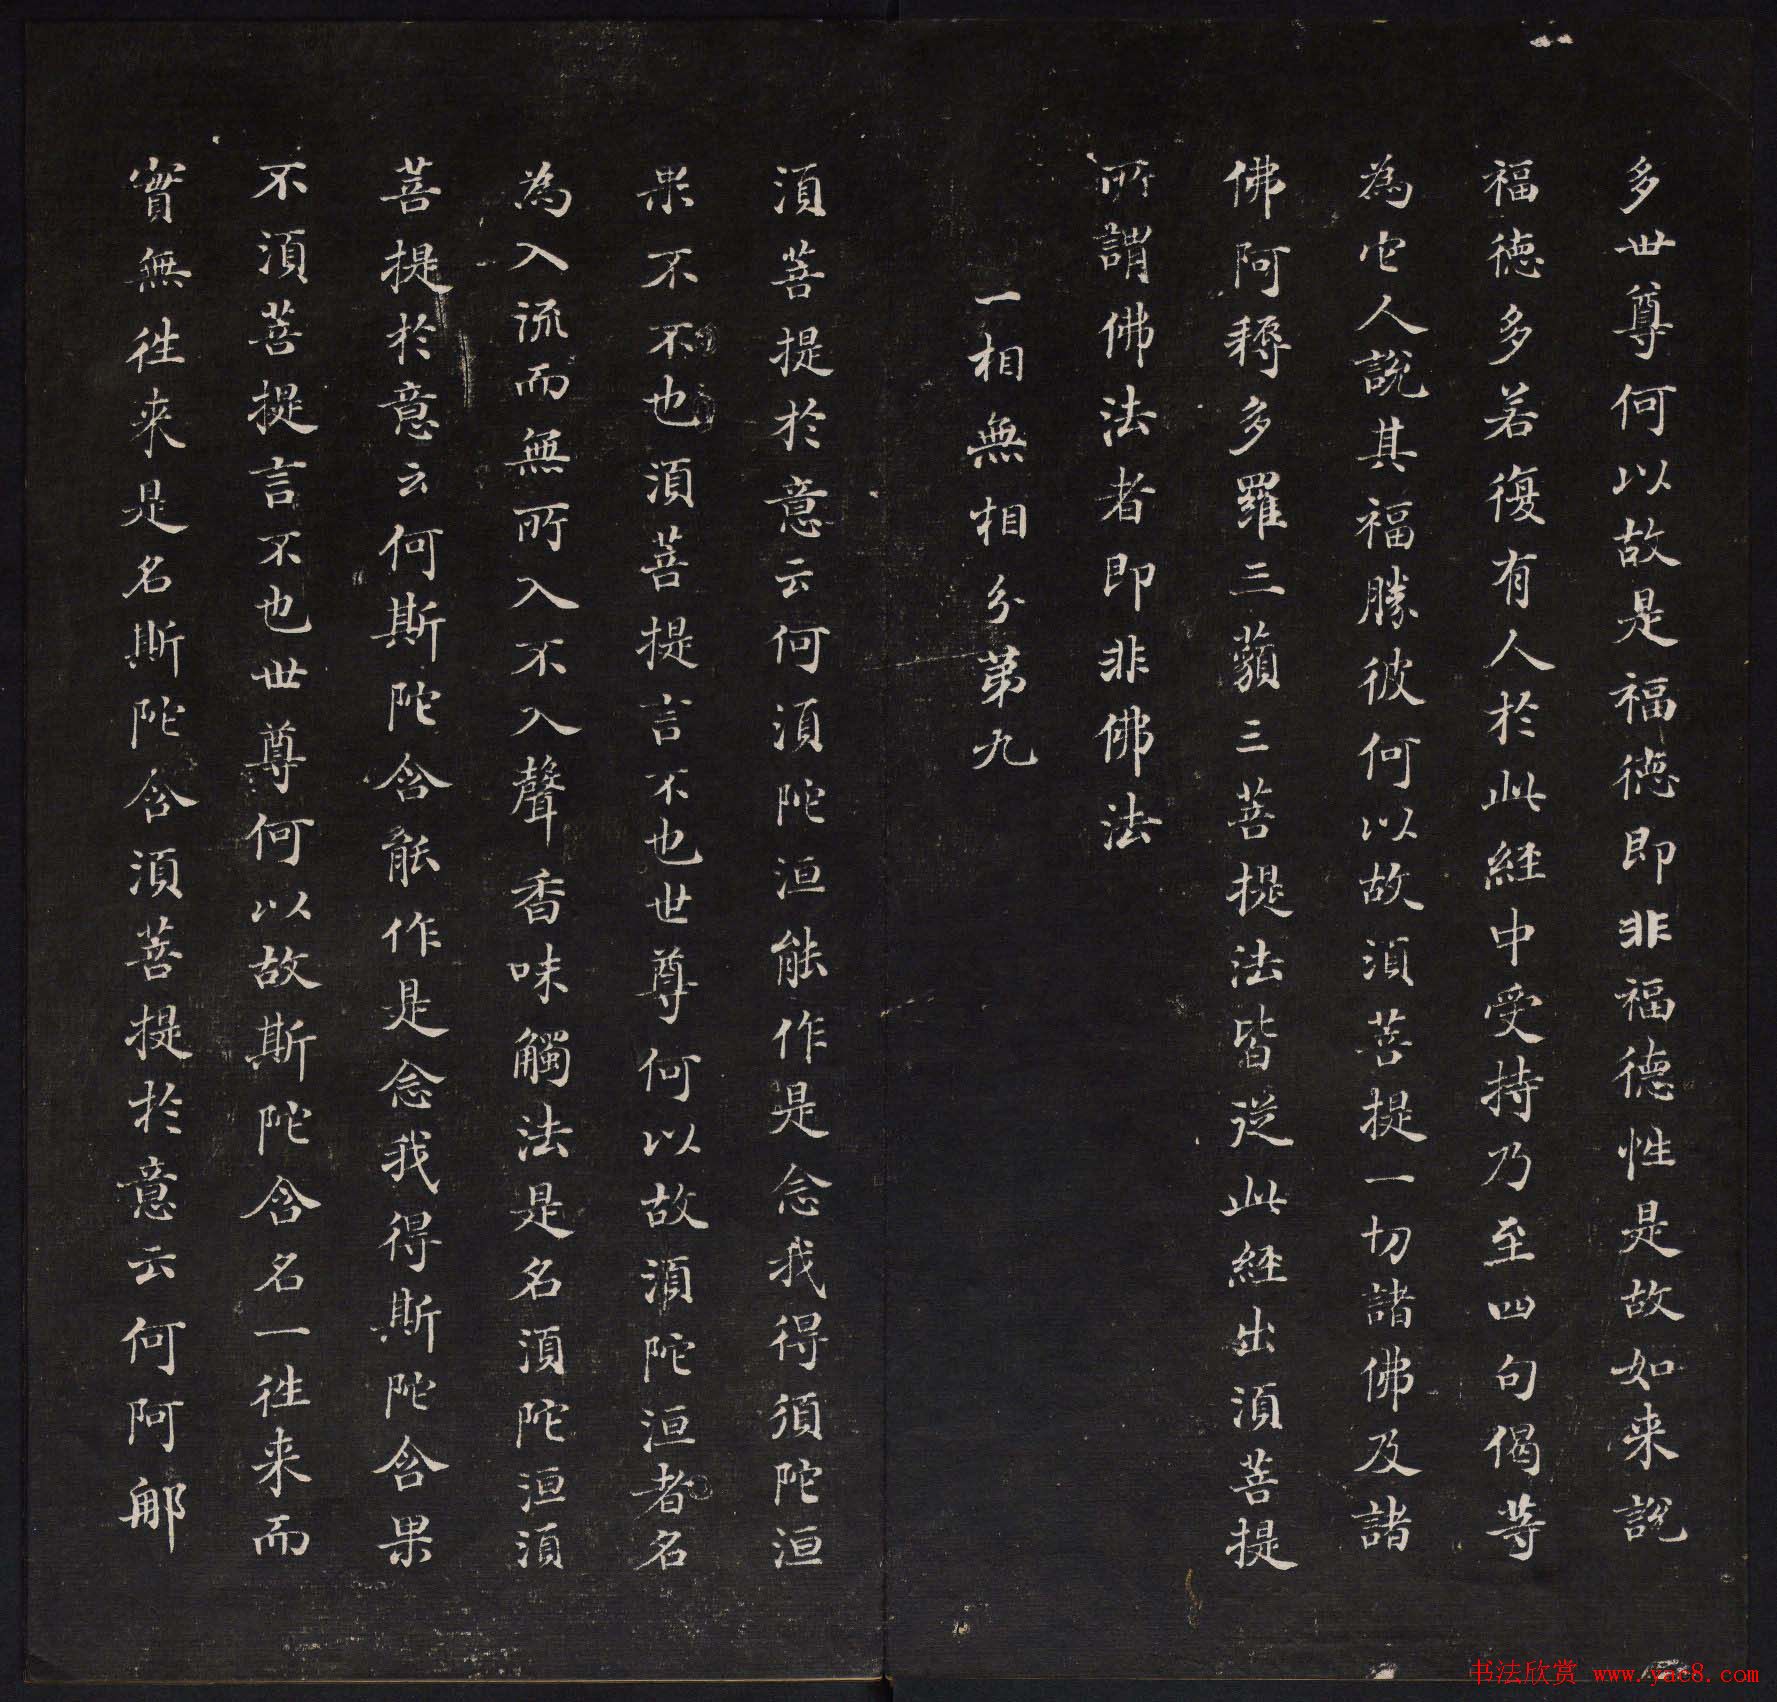 多世尊何以故是福德即非福德性是故如来説
福德多若復有人於此經中受持乃至四句偈等
為它人説其福勝彼何以故須菩提一切諸佛及諸
佛阿耨多羅三藐三菩提法皆從此經出須菩提
所謂佛法者即非佛法
一相無相分第九
須菩提於意云何須陀洹能作是念我得須陀洹
果不不也須菩提言不也世尊何以故須陀洹者名
為入流而無所入不入聲香味觸法是名須陀洹須
菩提於意云何斯陀含能作是念我得斯陀含果
不須菩提言不也世尊何以故斯陀含名一往来而
實無往来是名斯陀含須菩提於意云何阿那
书法欣赏 www.yac8.com